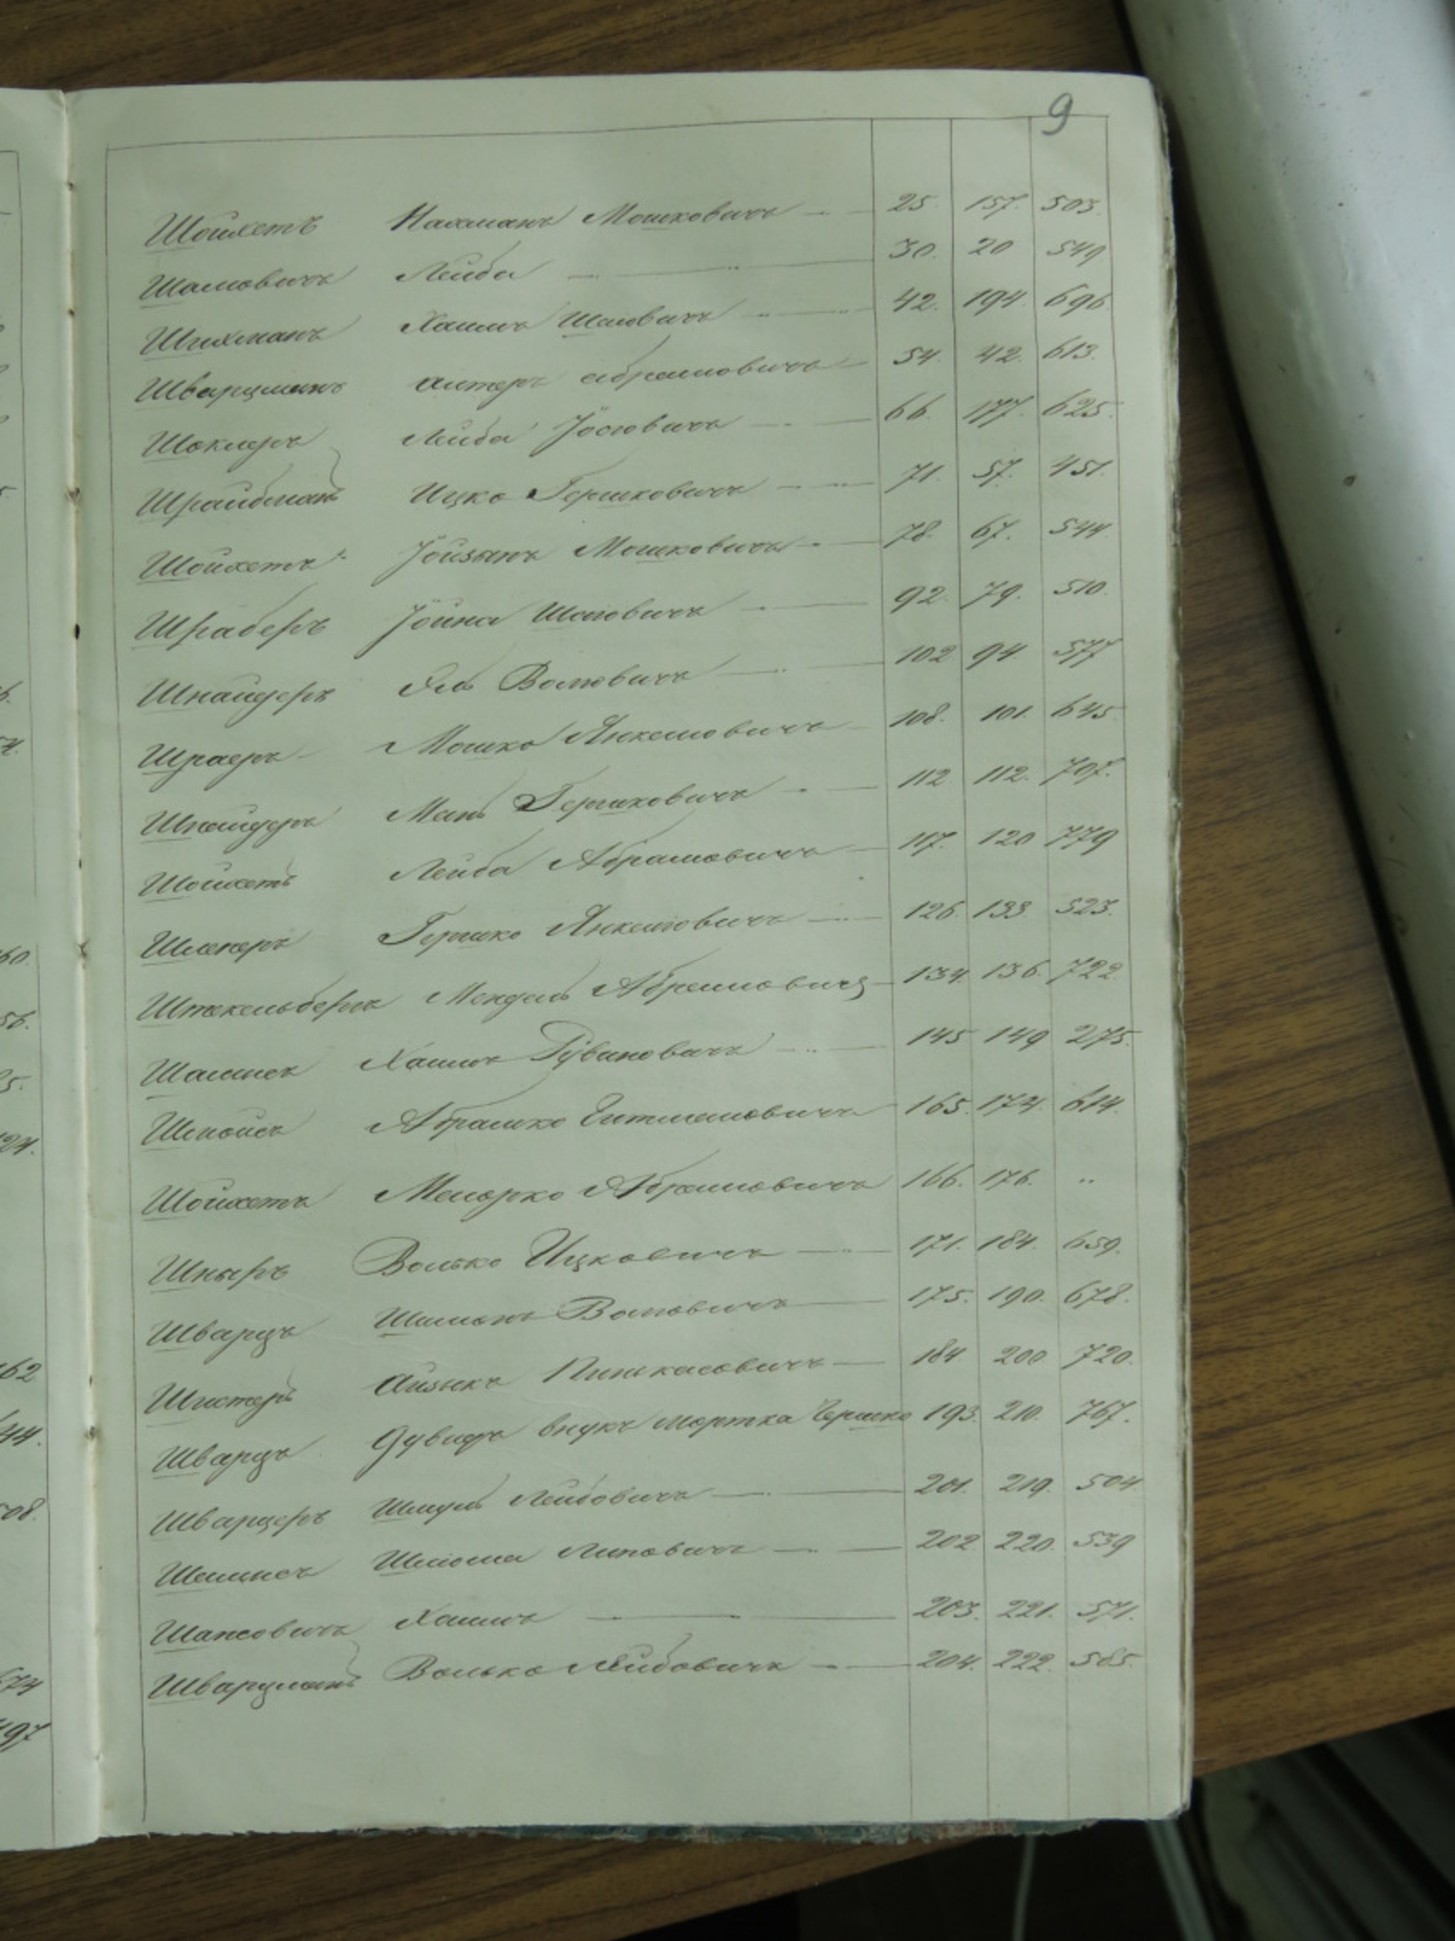 9
Шойхетъ Нахманъ Мошковичъ 25. 157. 503.
Шамовичъ Лейба 30. 20 549
Шихманъ Хаимъ Шаевичъ 42. 194. 696
Шварцманъ Алтеръ Абрамовичъ 54. 42. 613.
Шоклеръ Лейба Іосіовичъ 66. 177. 625.
Шрайбманъ Ицко Гершковичъ 71. 57. 451.
Шойхетъ Мошковичъ 78. 67. 544
Шраберъ Іойна 92. 79. 510.
Шнайдеръ Волковичъ 102 94. 577
Шраеръ Мошко Янкелевичъ 108. 101. 645
Шнайдеръ Мань Гершковичъ 112 112. 707.
Шойхетъ Лейба Абрамовичъ 117. 120 779
Гершко Янкелевичъ 126. 133 523.
Штекельбергъ Мендель Абрамовичъ 134. 136. 722
Хаимъ Рувиновичъ 145 149 275.
Абрамко 165. 174. 614.
Шойхетъ Абрамовичъ 166. 176. "
Шныръ Волько Ицковичъ 171. 184. 659.
Шварцъ Шимонъ Волковичъ 175. 190. 678.
Шистеръ Айзикъ Пинкасовичъ 184 200 720.
Шварцъ Дувидъ внукъ Мортка Гершко 193. 210. 767.
Шварцеръ Шмуль Лейбовичъ 201. 219. 504
Шлиома Липовичъ 202 220. 539
Шапсовичъ Хаимъ 203. 221. 571.
Шварцманъ Волько Лейбовичъ 204. 222. 585.